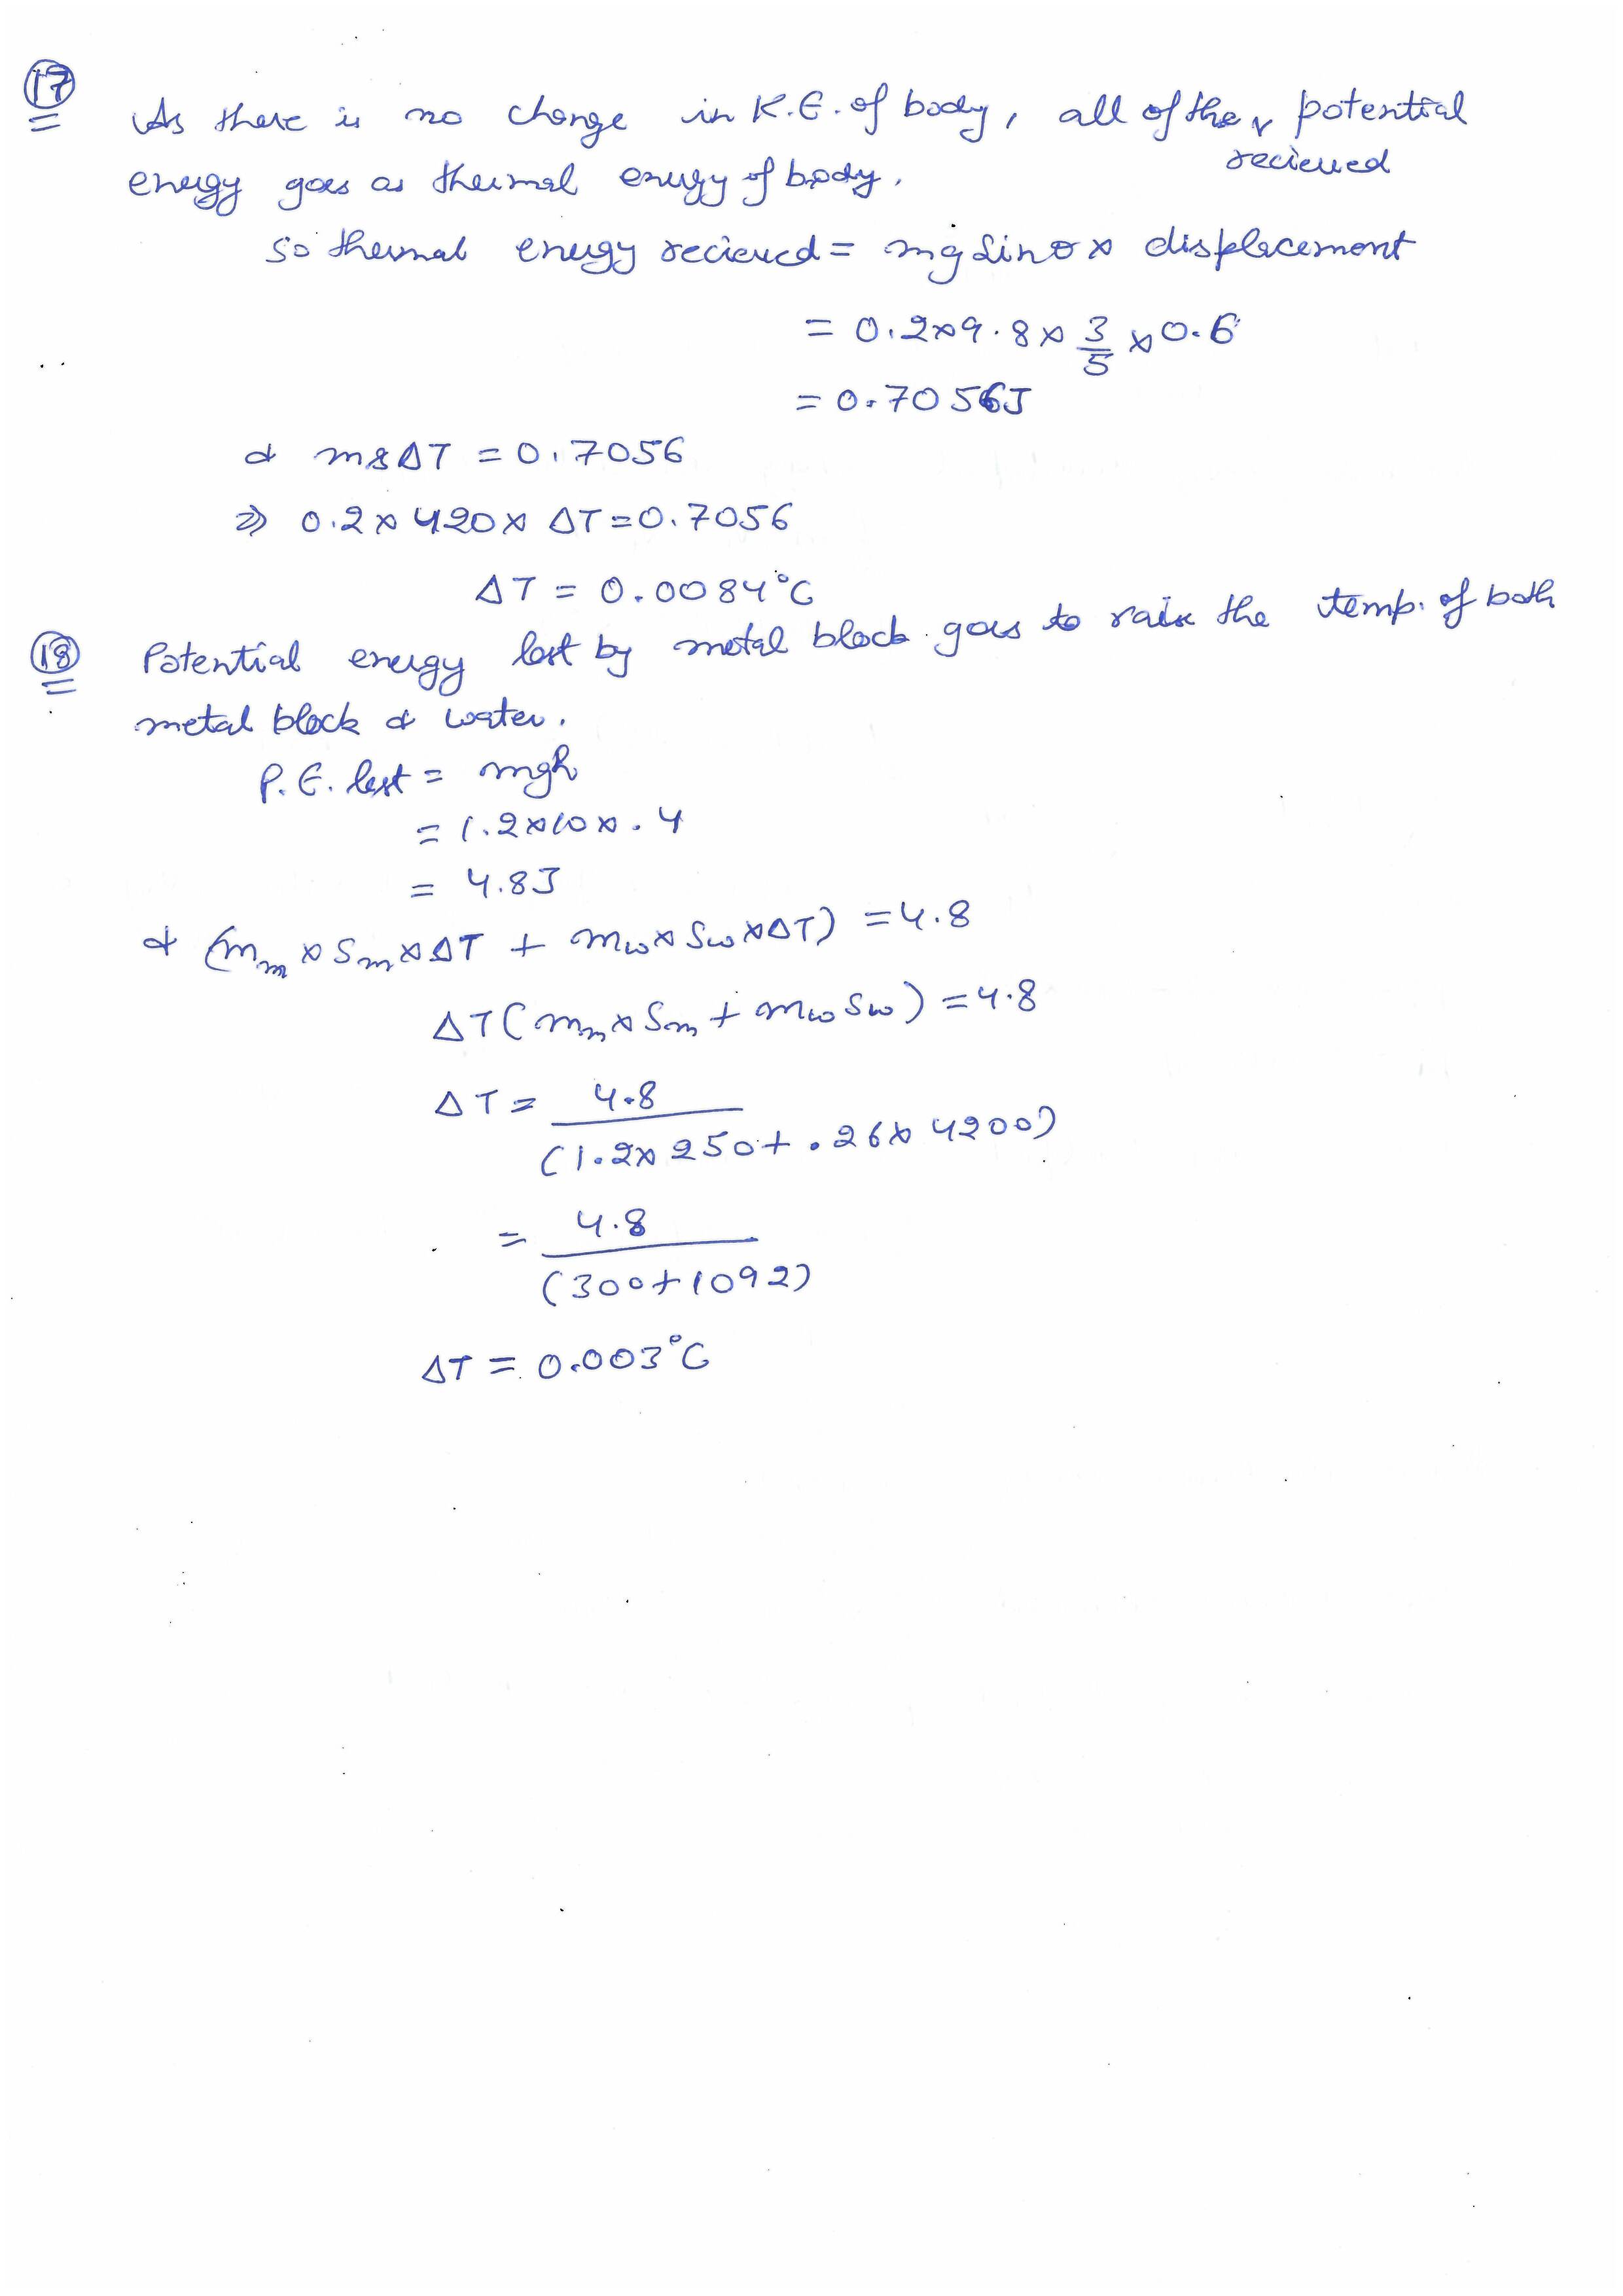 17
As there is no change in K.E. of body, all of the recieved potential
energy goes as thermal energy of body.
So thermal energy recieved = mg sinθ × displacement
= 0.2×9.8× 3/5 ×0.6
= 0.7056J
& msΔT = 0.7056
⇒ 0.2×420×ΔT=0.7056
ΔT = 0.0084°C
18
Potential energy lost by metal block goes to raise the temp. of both
metal block & water.
P.E. lost = mgh
= 1.2×10×.4
= 4.8J
& (mm × Sm × ΔT + mw × Sw × ΔT) = 4.8
ΔT(mm × Sm + mw Sw) = 4.8
ΔT = 4.8/(1.2×250+.26×4200)
= 4.8/(300+1092)
ΔT = 0.003°C